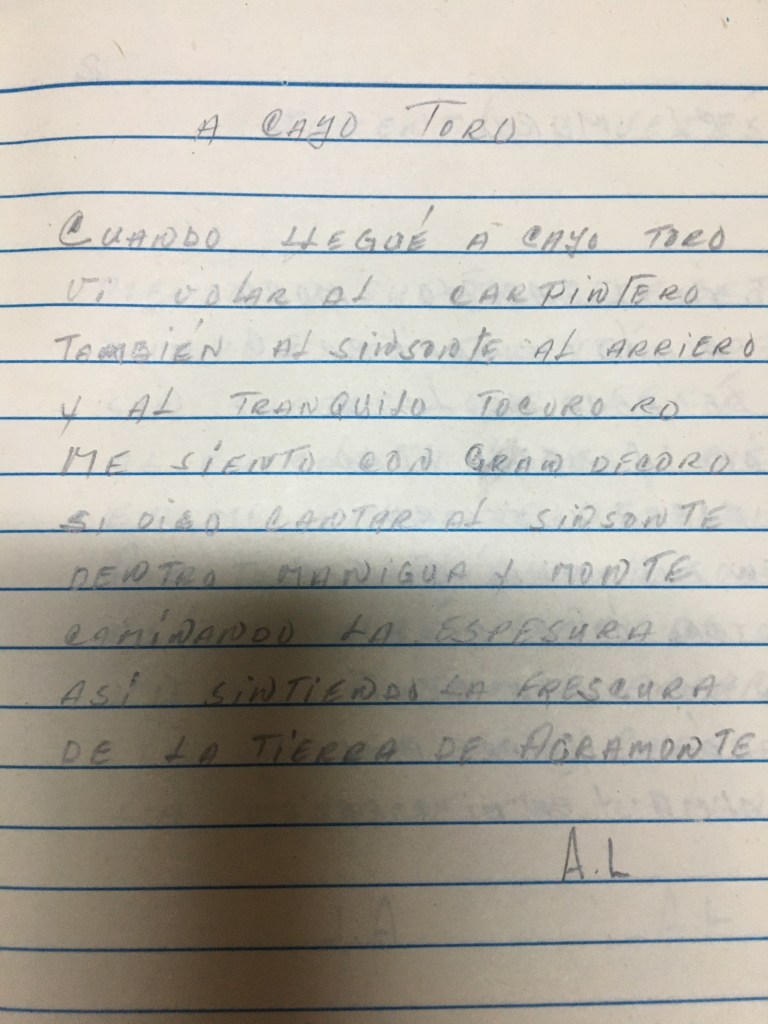 A CAYO TORO
CUANDO LLEGUÉ A CAYO TORO
VI VOLAR AL CARPINTERO
TAMBIÉN AL SINSONTE AL ARRIERO
Y AL TRANQUILO TOCORORO
ME SIENTO CON GRAN DECORO
SI OIGO CANTAR AL SINSONTE
DENTRO MANIGUA Y MONTE
CAMINANDO LA ESPESURA
ASÍ SINTIENDO LA FRESCURA
DE LA TIERRA DE AGRAMONTE
A.L